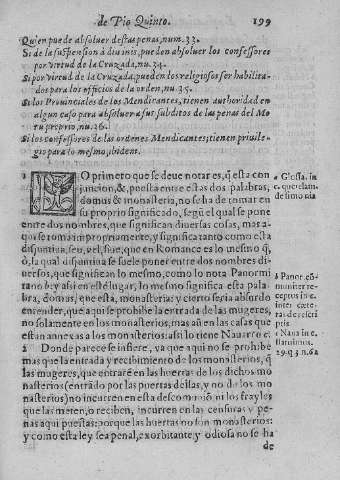 de Pio Quinto. 199
Quien puede absoluer destas penas, num. 33.
Si de la suspension à diuinis, pueden absoluer los confessores
por virtud de la Cruzada, nu. 34.
Si por virtud de la Cruzada, pueden los religiosos ser habilitados
para los officios de la orden, nu. 35.
Si los Prouinciales de los Mendicantes, tienen authoridad en
algun caso para absoluer a sus subditos de las penas del Mo
tu proprio, nu. 36.
Si los confessores de las ordenes Mendicantes, tienen priuile-
gio para lo mesmo, ibidem.
1 LO primero que se deue notar es, q̃ esta con
juncion, &, puesta entre estas dos palabras,
domus & monasteria, no se ha de tomar en
su proprio significado, segũ el qual se pone
entre dos nombres, que significan diuersas cosas, mas a-
qui se toma impropriamente, y significa tanto como esta
disjuntiua, seu, vel, siue, que en Romance es lo mesmo q̃,
ò, la qual disjuntiua se suele poner entre dos nombres di-
uersos, que significan lo mesmo, como lo nota Panormi
tano b ey assi en este lugar, lo mesmo significa esta pala
bra, domus, que esta, monasteria: y cierto seria absurdo
entender, que aqui se prohibe la entrada de las mugeres,
no solamente en los monasterios, mas aũ en las casas que
estan annexas a los monasterios: assi lo tiene Nauarro c.
2 Donde parece se infiere, q̃ aunque aqui no se prohibe
mas que la entrada y recibimiento de los monasterios, q̃
las mugeres, que entrarẽ en las huertas de los dichos mo
nasterios (entrãdo por las puertas dellas, y no de los mo
nasterios) no incurren en esta descomuniõ, ni los frayles
que las meten, o reciben, incurren en las censuras y pe-
nas aqui puestas: porque las huertas no son monasterios:
y como esta ley sea penal, exorbitante, y odiosa no se ha
de
a Glossa. in
c. que
simonia
b Panor.
ceptos in
c. inter
ras
pris
c Naua in c.
statuimus.
19. q. 3 n. 62